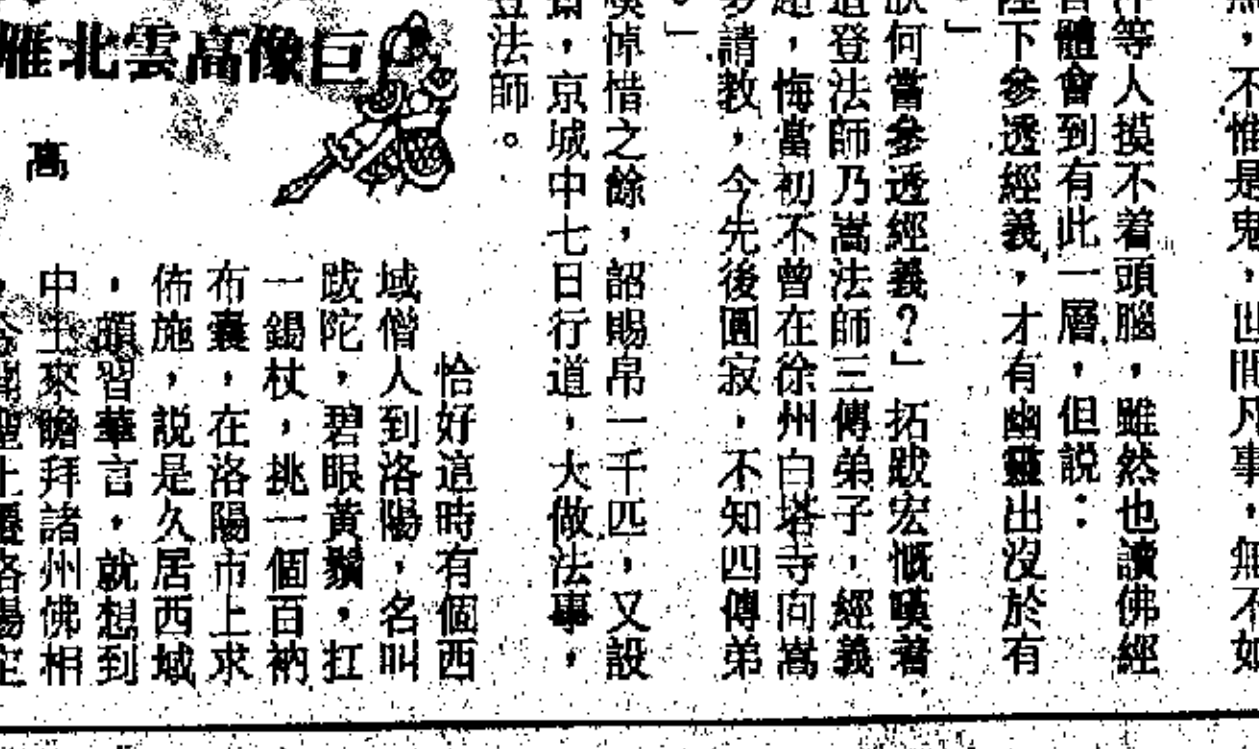 無，不惟是鬼，世間凡事，無不如
等人摸不着頭腦，雖然也讀佛經
體會到有此一層，但説：
陛下參透經義，才有幽靈出沒於有
」
朕何嘗參透經義？」拓跋宏慨嘆着
道登法師乃嵩法師三傳弟子，經義
，悔當初不曾在徐州白塔寺向嵩
多請教，今先後圓寂，不知四傳弟
。」
悼惜之餘，詔賜帛一千匹，又設
齋，京城中七日行道，大做法事，
登法師。
巨像高雲北雁
高
恰好這時有個西
域僧人到洛陽，名叫
跋陀，碧眼黃鬚，扛
一錫杖，挑一個百衲
布囊，在洛陽市上求
佈施，説是久居西域
，頗習華言，就想到
中土來瞻拜諸州佛相